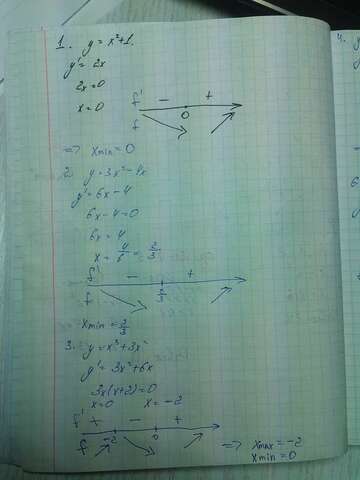 1. y = x²+1.
y' = 2x
2x=0
x=0
f' - +
0
f
=> xmin = 0
2. y=3x²-4x
y'=6x-4
6x-4=0
6x=4
x = 4/6 = 2/3.
f' - +
2/3
f
xmin = 2/3
3. y=x³+3x²
y' = 3x²+6x
3x(x+2)=0
x=0 x=-2
f' + - +
f -2 0
=> xmax = -2
xmin = 0
4.